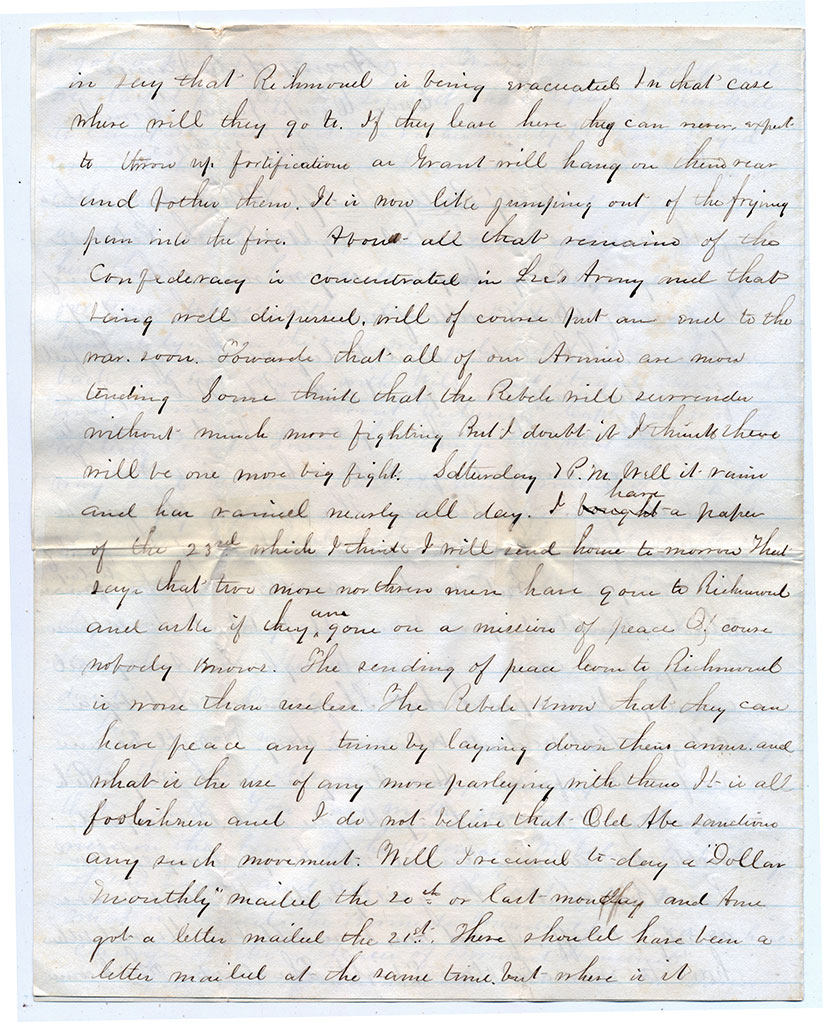 in say that Richmond is being evacuated In that case
where will they go to. If they leave here they can never. expect
to throw up fortifications as Grant will hang on their rear
and bother them. It is now like jumping out of the frying
pan into the fire. About all that remains of the
Confederacy is concentrated in Lee's Army and that
being well dispersed. will of course put an end to the
war. soon. Towards that all of our Armies are now
tending Some think that the Rebels will surrender
without much more fighting But I doubt it I think there
will be one more big fight. Saturday 7 P.M. Well it rains
and has rained nearly all day. I bought have a paper
of the 23rd which I think I will send home to-morrow That
says that two more northren men have gone to Richmond
and asks if they are gone on a mission of peace Of course
nobody knows. The sending of peace Com to Richmond
is worse than useless. The Rebels know that they can
have peace any time by laying down their arms. and
what is the use of any more parleying with them It is all
foolishness and I do not believe that Old Abe sanctions
any such movement. Well I recieved to-day a "Dollar
Monthly" mailed the 20th or last and
got a letter mailed the 21st. There should have been a
letter mailed at the same time. but where is it